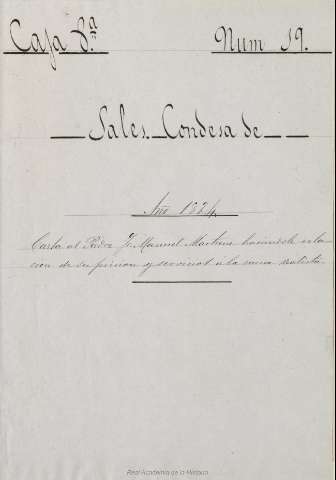 Caja 8.ª Num 19.
Sales Condesa de
Año 1824.
Carta al Padre F. Manuel Martinez haciendole rela-
cion de su prision y servicios a la causa realista.
Real Academia de la Historia